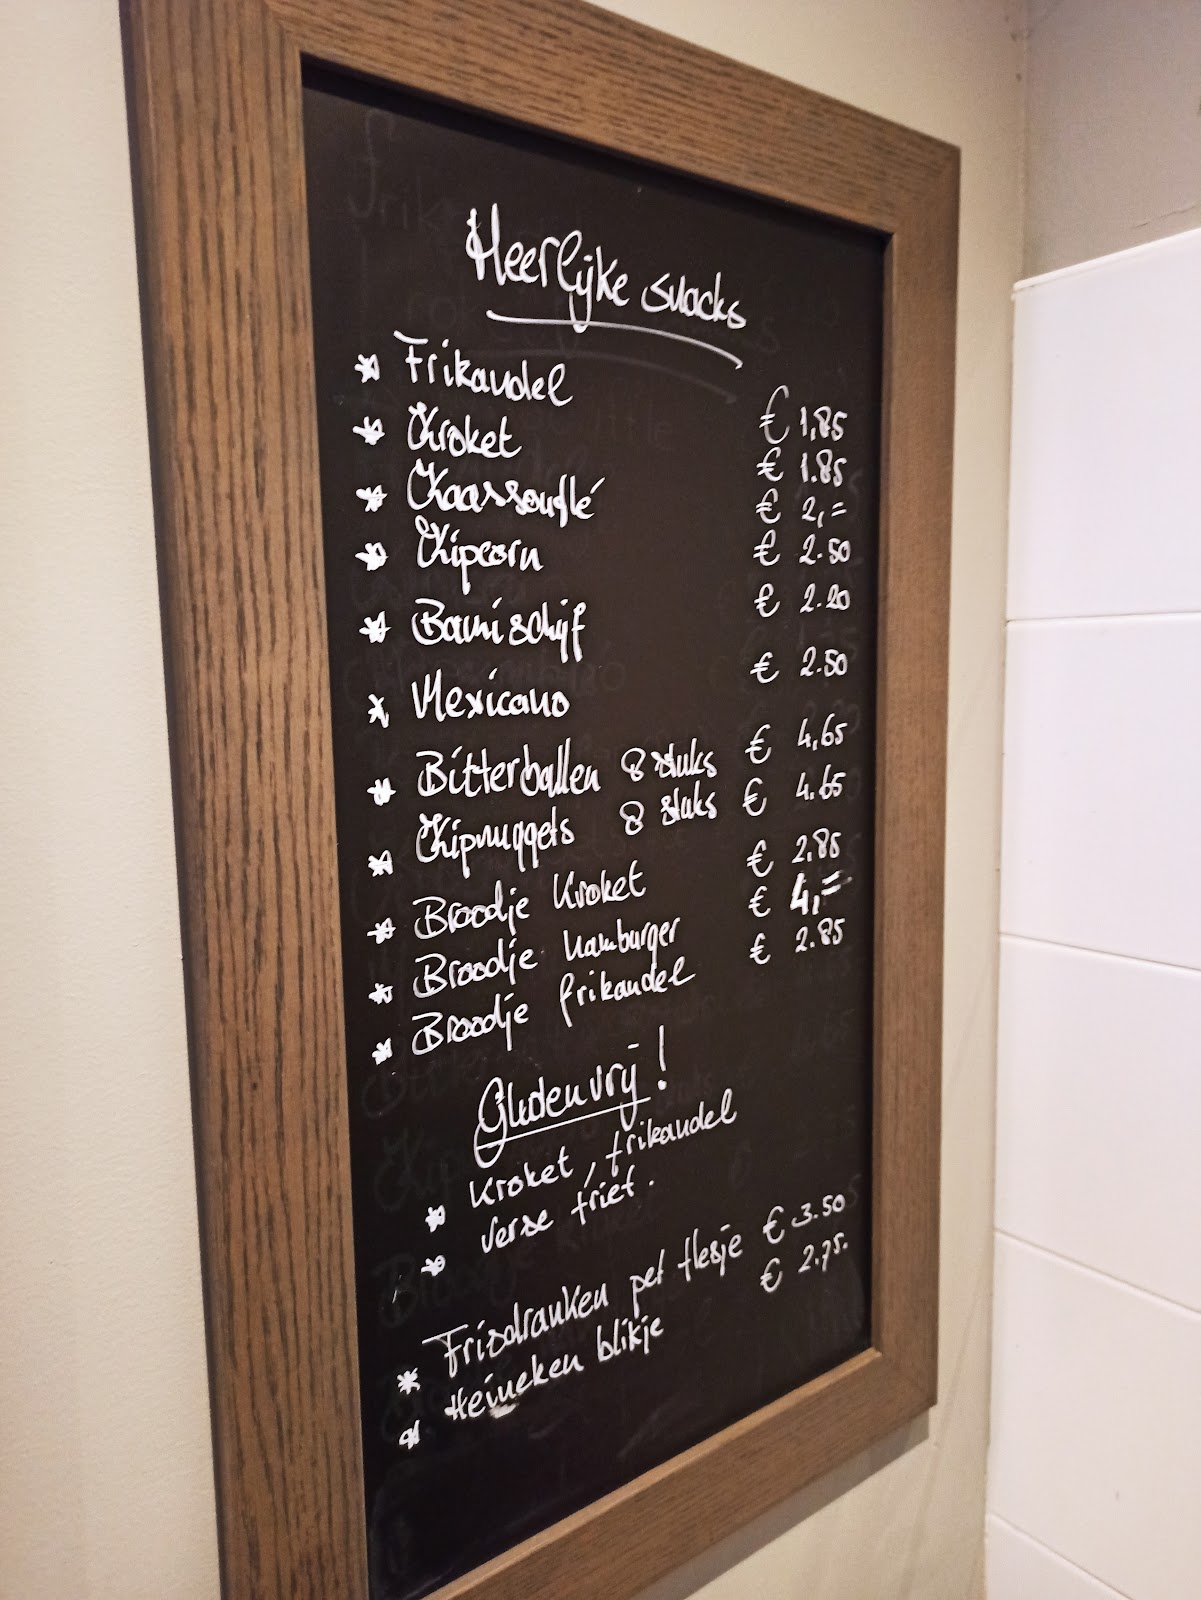 Heerlijke snacks
* Frikandel € 1,85
* Kroket € 1.85
* Kaassouflé € 2,=
* Kipcorn € 2.50
* Bami schijf € 2.20
* Mexicano € 2.50
* Bitterballen 8 stuks € 4,65
* Kipnuggets 8 stuks € 4.65
* Broodje Kroket € 2,85
* Broodje hamburger € 4,=
* Broodje frikandel € 2.85
Glutenvrij!
* Kroket, frikandel
* verse friet.
* Frisdranken pet flesje € 3.50
* Heineken blikje € 2,75.